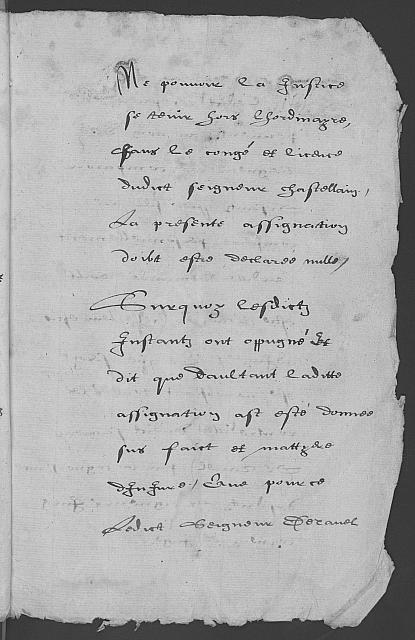 Ne pouvoir la Justice
se tenir hors lhordinayre,
sans le congé et licence
dudict seigneur chastellain,
La presente assignation
doibt estre declarée nulle,
Surquoy lesdictz
Instantz ont oppugné Et
dit que daultant laditte
assignation ast esté donnee
sus faict et mattyere
dInIure, Que pource
Ledict Seigneur